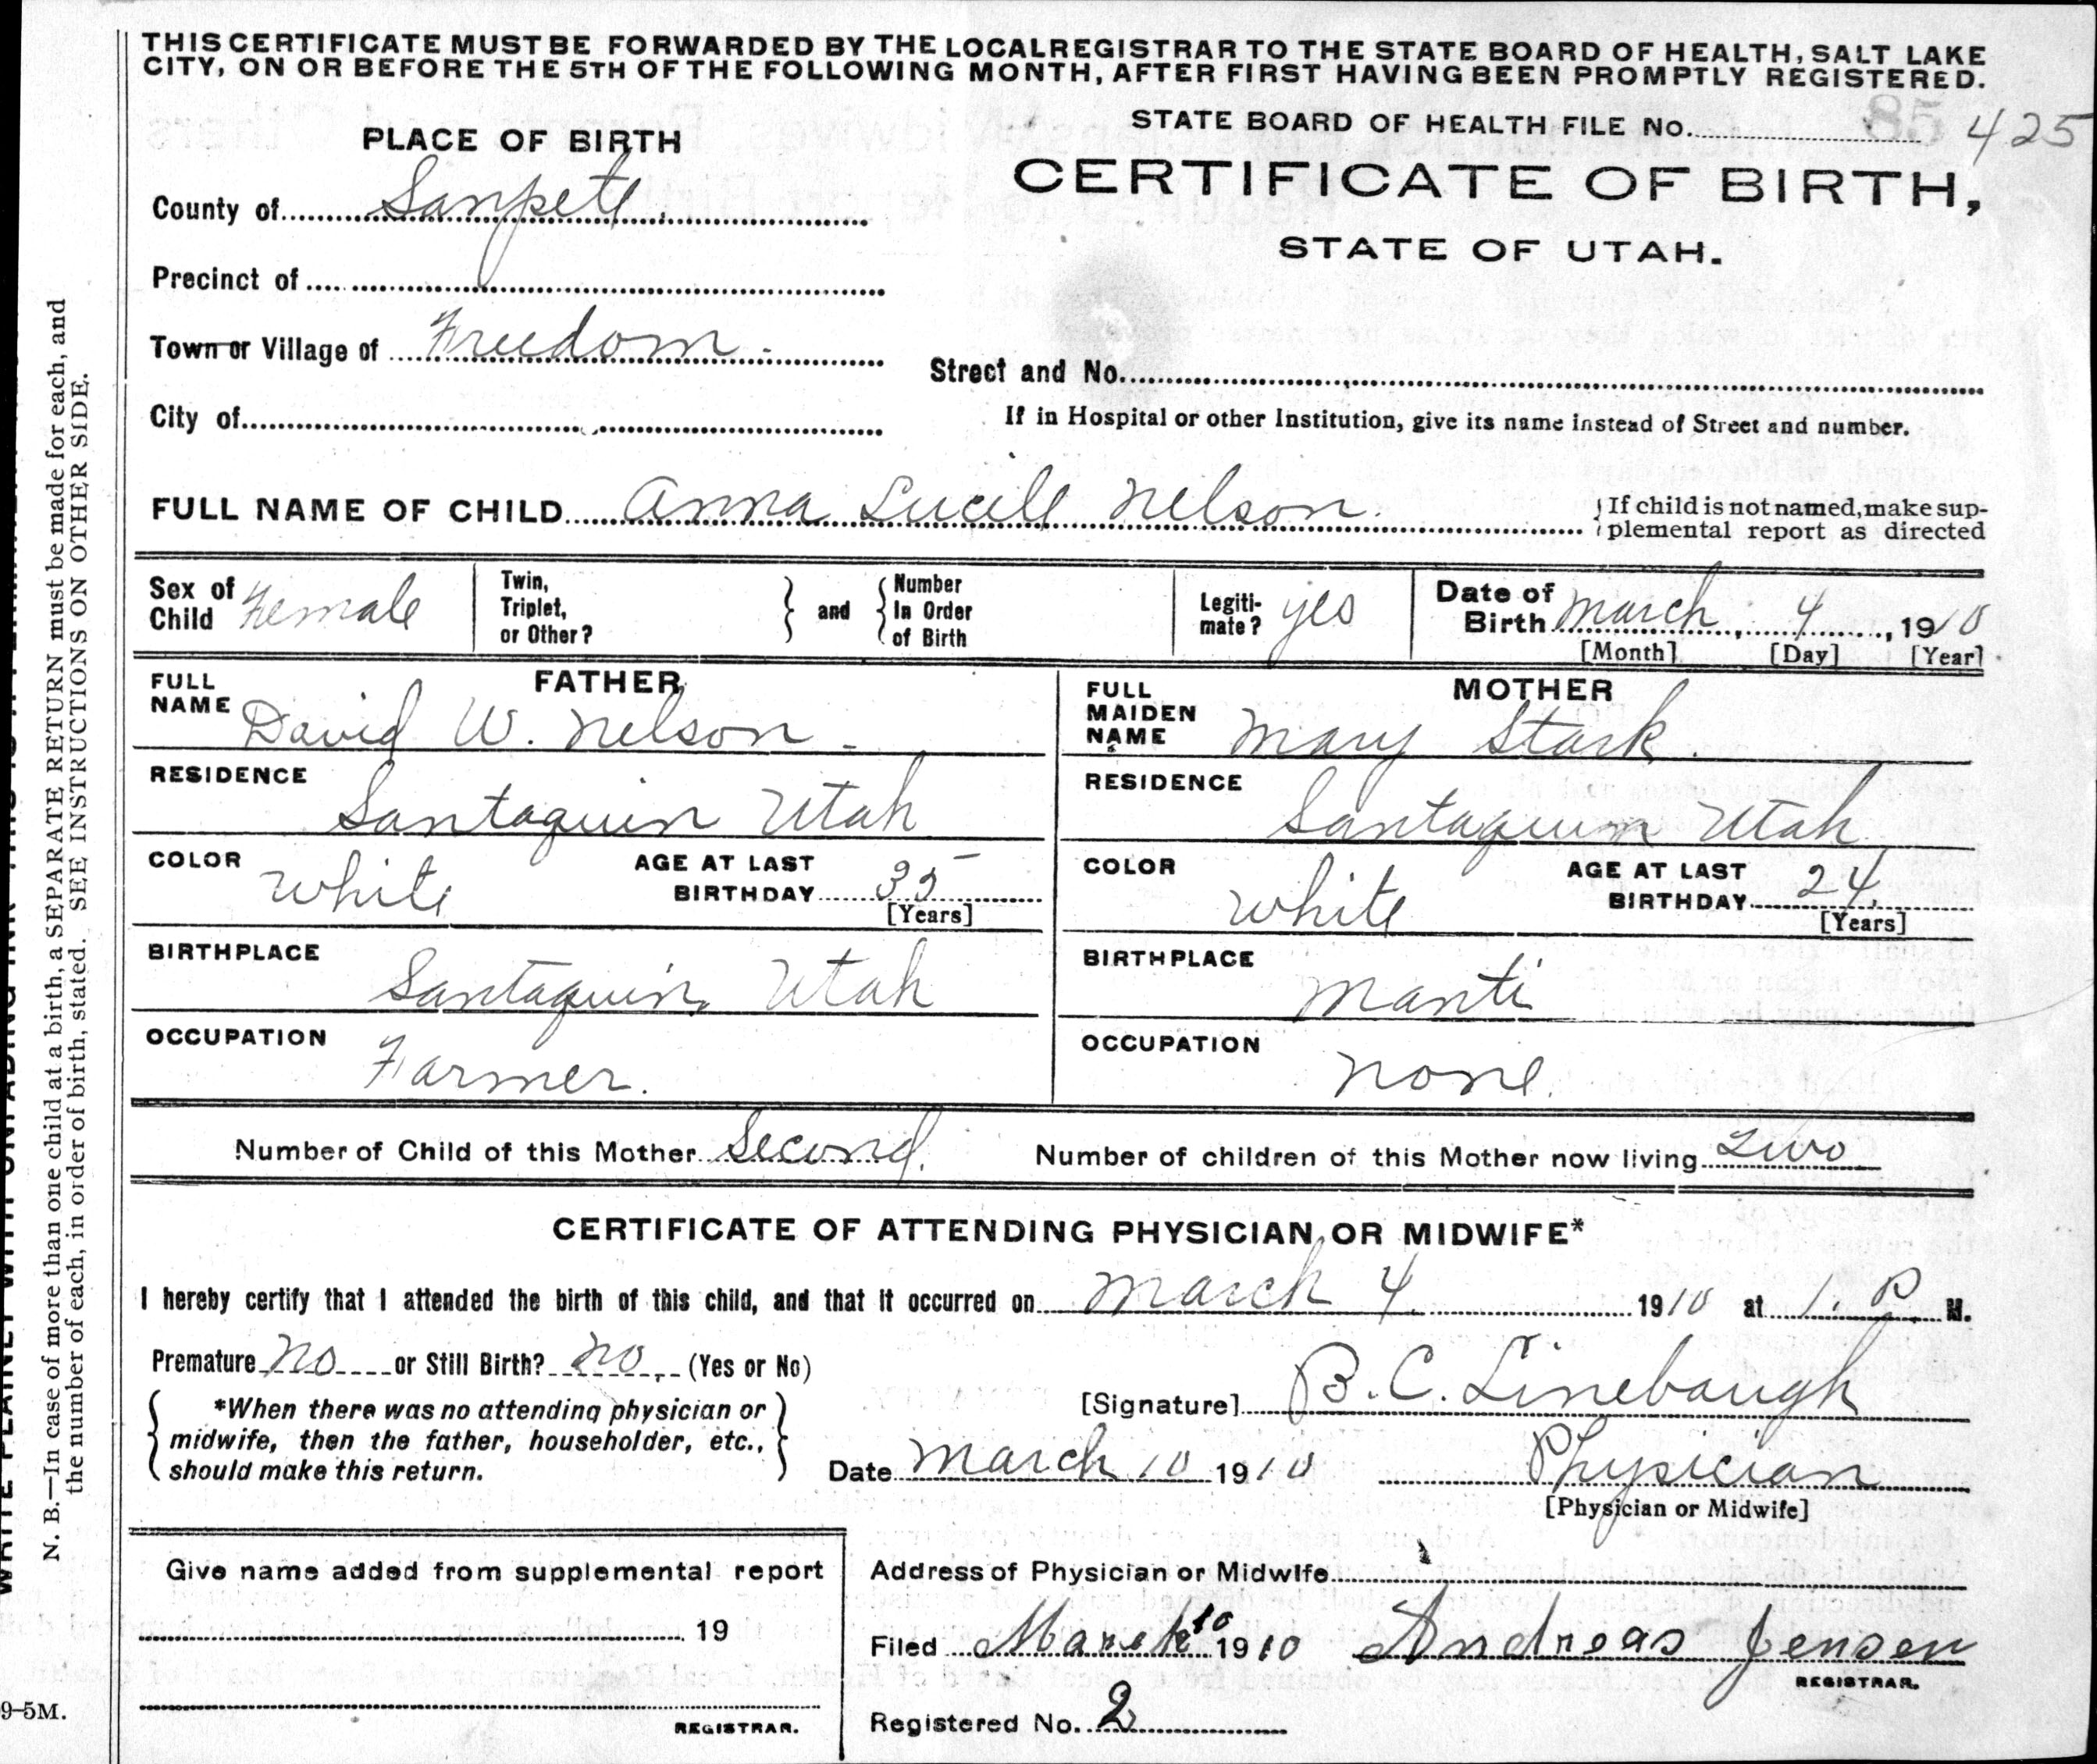 THIS CERTIFICATE MUST BE FORWARDED BY THE LOCAL REGISTRAR TO THE STATE BOARD OF HEALTH, SALT LAKE
CITY, ON OR BEFORE THE 5TH OF THE FOLLOWING MONTH, AFTER FIRST HAVING BEEN PROMPTLY REGISTERED.
STATE BOARD OF HEALTH FILE No. 85 425
CERTIFICATE OF BIRTH,
STATE OF UTAH.
PLACE OF BIRTH
County of Sanpete
Precinct of
Town or Village of Freedom
Street and No.
City of
If in Hospital or other Institution, give its name instead of Street and number.
FULL NAME OF CHILD Anna Lucill Nelson.
If child is not named, make sup-
plemental report as directed
Sex of
Child Female
Twin,
Triplet,
or Other?
and
Number
In Order
of Birth
Legiti-
mate? yes
Date of
Birth March, 4, 1910
[Month] [Day] [Year]
FATHER
FULL
NAME David W. Nelson
RESIDENCE
Santaquin Utah
COLOR white
AGE AT LAST
BIRTHDAY 35
[Years]
BIRTHPLACE
Santaquin Utah
OCCUPATION
Farmer.
MOTHER
FULL
MAIDEN
NAME Mary Stark.
RESIDENCE
Santaquin Utah
COLOR white
AGE AT LAST
BIRTHDAY 24
[Years]
BIRTHPLACE
Manti
OCCUPATION
None.
Number of Child of this Mother Second. Number of children of this Mother now living Two
CERTIFICATE OF ATTENDING PHYSICIAN OR MIDWIFE*
I hereby certify that I attended the birth of this child, and that it occurred on March 4 1910 at 1. P. M.
Premature No or Still Birth? No (Yes or No)
*When there was no attending physician or
midwife, then the father, householder, etc.,
should make this return.
[Signature] B. C. Linebaugh
Date March 10 1910 Physician
[Physician or Midwife]
Give name added from supplemental report
19
REGISTRAR.
Address of Physician or Midwife
Filed March 10 1910 Andreas Jensen
REGISTRAR.
Registered No. 2
N. B.—In case of more than one child at a birth, a SEPARATE RETURN must be made for each, and
the number of each, in order of birth, stated. SEE INSTRUCTIONS ON OTHER SIDE.
9-5M.